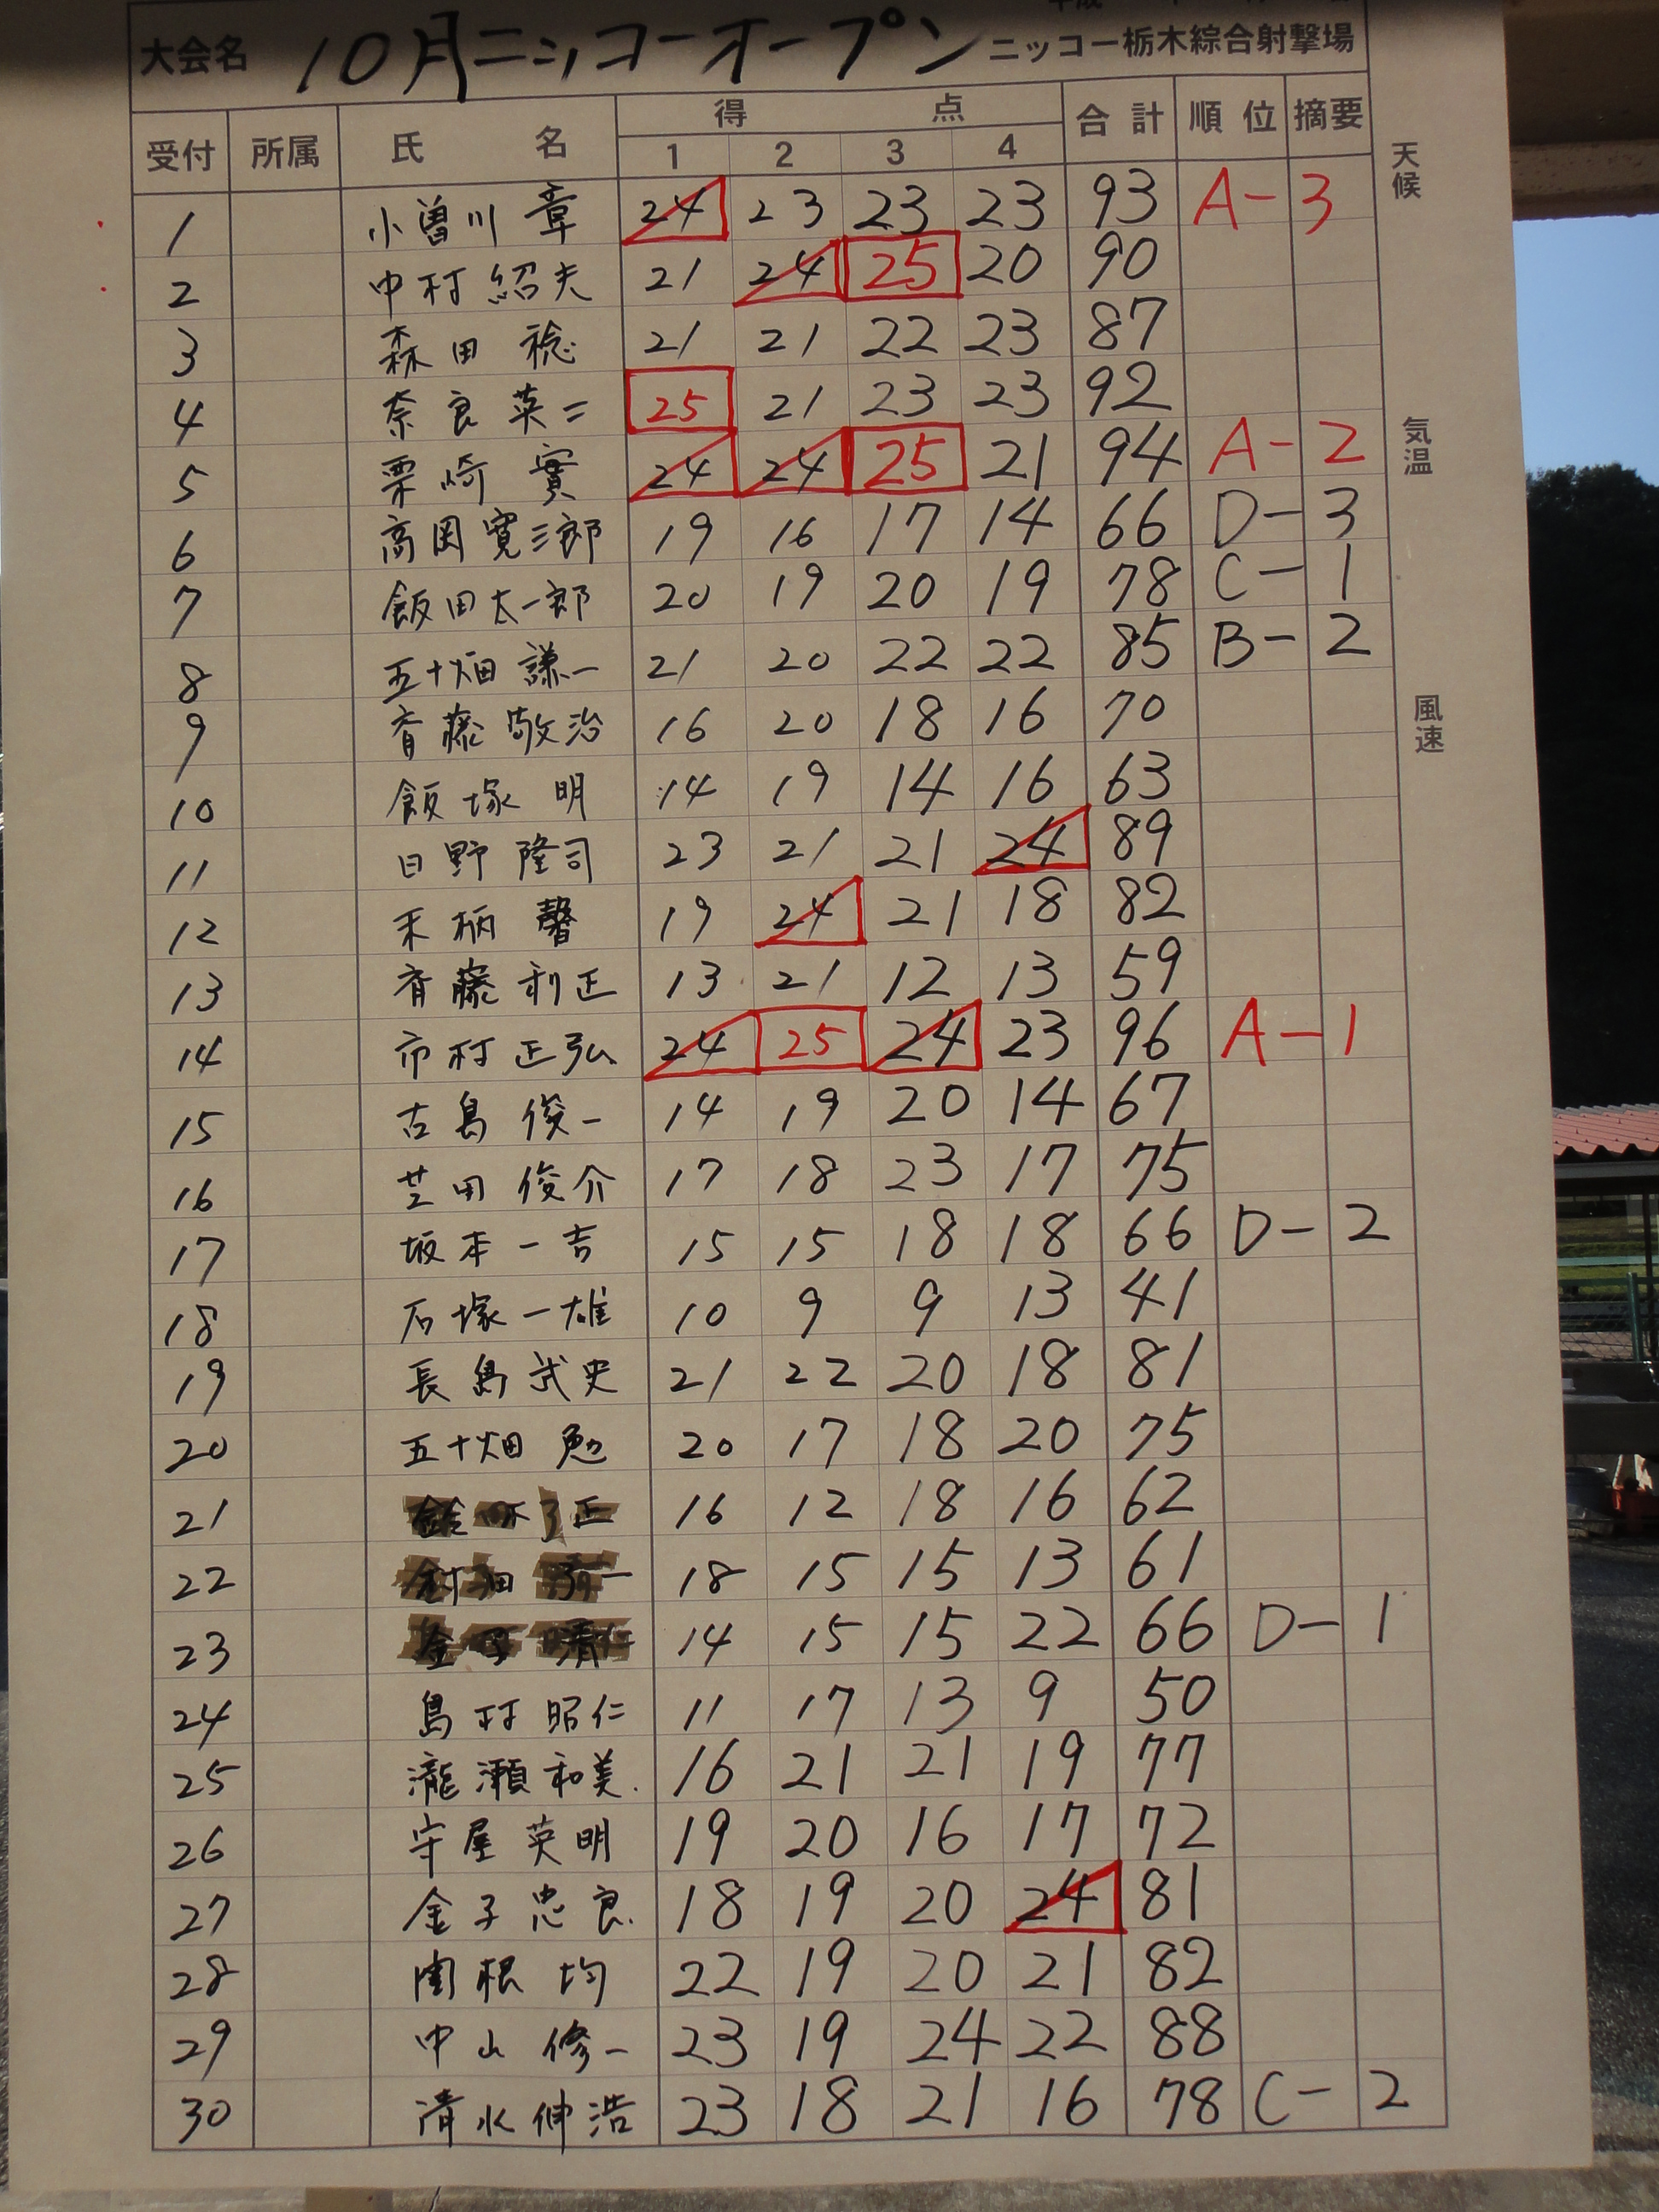 大会名 10月ニッコーオープン ニッコー栃木綜合射撃場
得点
受付 所属 氏名 1 2 3 4 合計 順位 摘要
天候
1 小曽川 章 24 23 23 23 93 A-3
2 中村 紹夫 21 24 25 20 90
3 森田 稔 21 21 22 23 87
4 奈良英二 25 21 23 23 92
気温
5 栗崎 實 24 24 25 21 94 A-2
6 高岡寛三郎 19 16 17 14 66 D-3
7 飯田太一郎 20 19 20 19 78 C-1
8 五十畑 謙一 21 20 22 22 85 B-2
風速
9 斉藤 敬治 16 20 18 16 70
10 飯塚 明 14 19 14 16 63
11 日野 隆司 23 21 21 24 89
12 柄 馨 19 24 21 18 82
13 斉藤 利正 13 21 12 13 59
14 市村 正弘 24 25 24 23 96 A-1
15 古島 俊一 14 19 20 14 67
16 芝田 俊介 17 18 23 17 75
17 坂本 一吉 15 15 18 18 66 D-2
18 石塚一雄 10 9 9 13 41
19 長島武史 21 22 20 18 81
20 五十畑 勉 20 17 18 20 75
21 正 16 12 18 16 62
22 一 18 15 15 13 61
23 金子 仁 14 15 15 22 66 D-1
24 島村 昭仁 11 17 13 9 50
25 瀧瀬和美 16 21 21 19 77
26 守屋 英明 19 20 16 17 72
27 金子 忠良 18 19 20 24 81
28 関根 均 22 19 20 21 82
29 中山 修一 23 19 24 22 88
30 清水伸浩 23 18 21 16 78 C-2